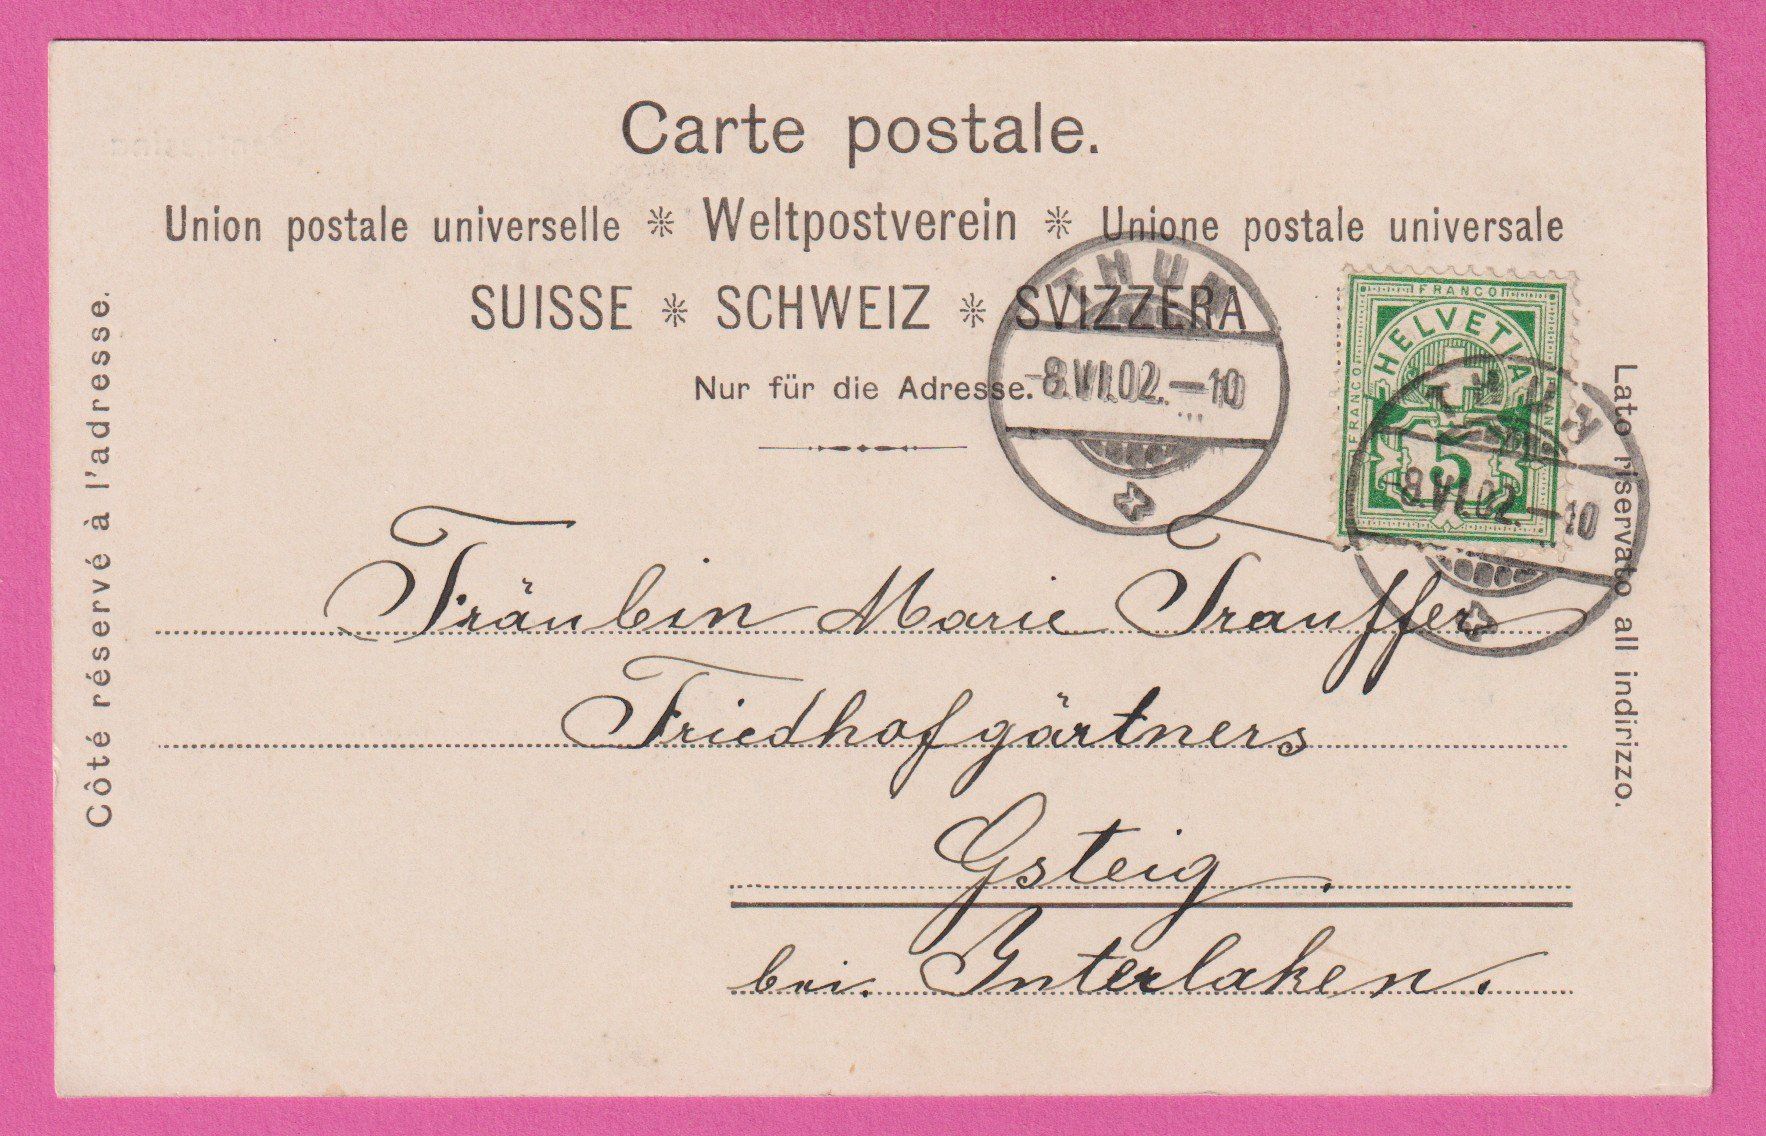 Carte postale.
Union postale universelle * Weltpostverein * Unione postale universale
SUISSE * SCHWEIZ * SVIZZERA
Nur für die Adresse.
Côté réservé à l'adresse.
Lato riservato all indirizzo.
THUN
-8.VI.02.-10
FRANCO
FRANCO
FRANCO
HELVETIA
5
THUN
-8.VI.02.-10
Fräulein Marie Trauffer
Friedhofgärtners
Gsteig.
bei. Interlaken.